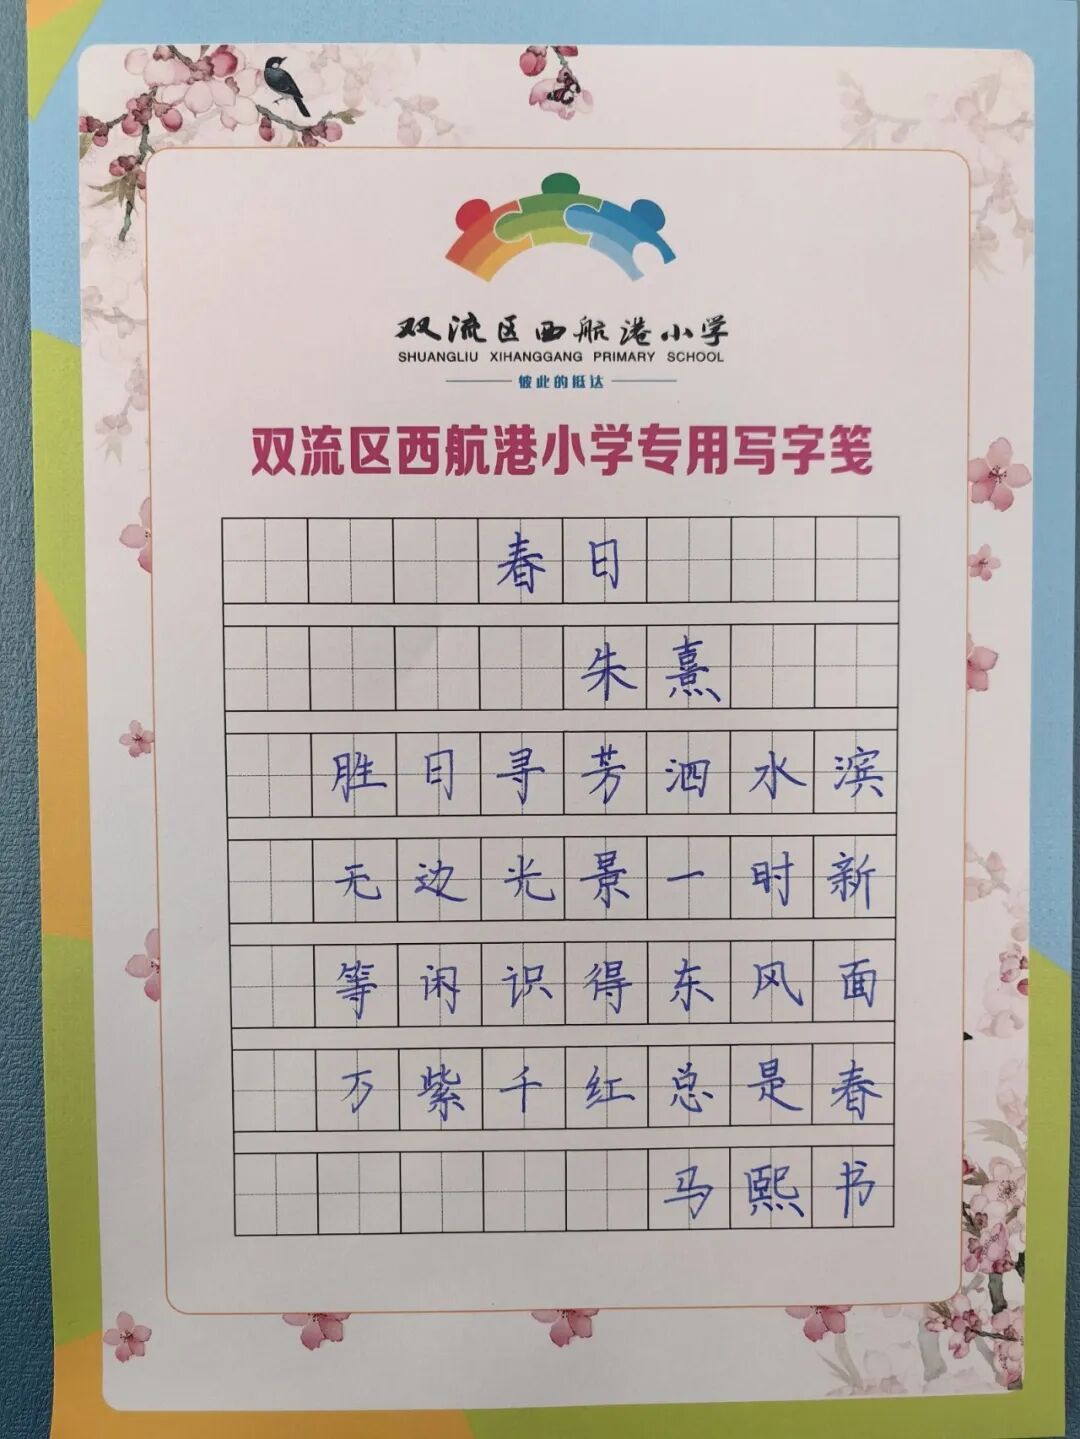 双流区西航港小学
SHUANGLIU XIHANGGANG PRIMARY SCHOOL
彼此的抵达
双流区西航港小学专用写字笺
春日
朱熹
胜日寻芳泗水滨
无边光景一时新
等闲识得东风面
万紫千红总是春
马熙书